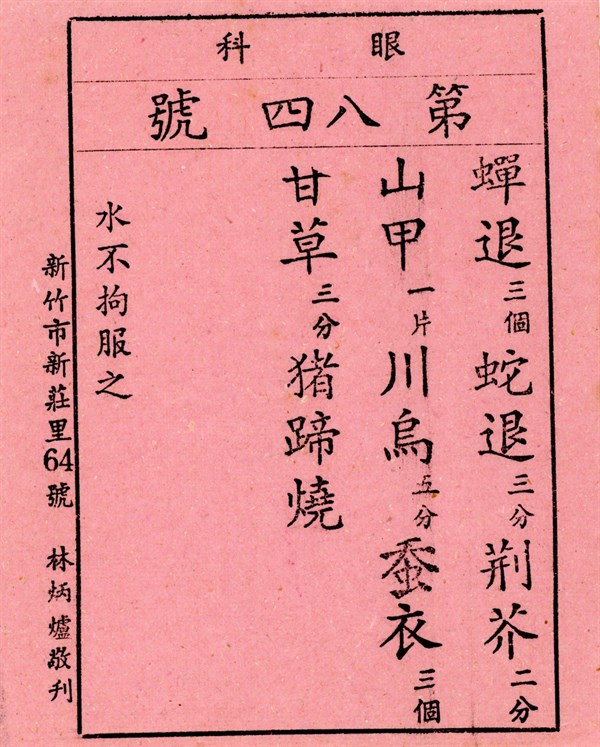 眼科
第八四號
蟬退三個蛇退三分荆芥二分
山甲一片川烏五分蚕衣三個
甘草三分猪蹄燒
水不拘服之
新竹市新莊里64號 林炳爐敬刊